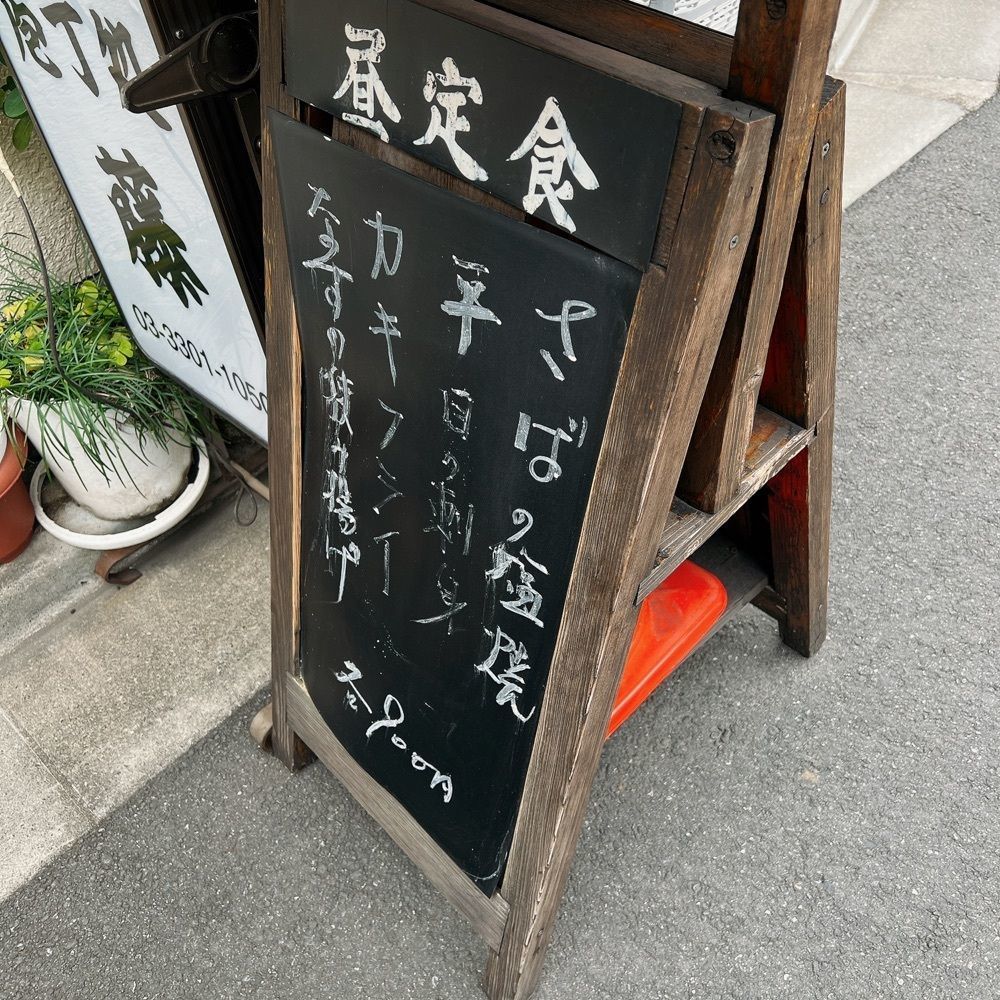 昼定食
さばの塩焼
平目の刺身
カキフライ
なすの豚〓揚げ
各900円
庖丁処
藤
03-3301-105